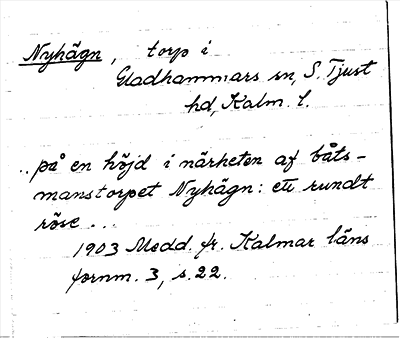 Nyhägn, torp i
Gladhammars sn, S. Tjust
hd, Kalm. l.
.. på en höjd i närheten af båts-
manstorpet Nyhägn: ett rundt
röse ...
1903 Medd. fr. Kalmar läns
fornm. 3, s. 22.